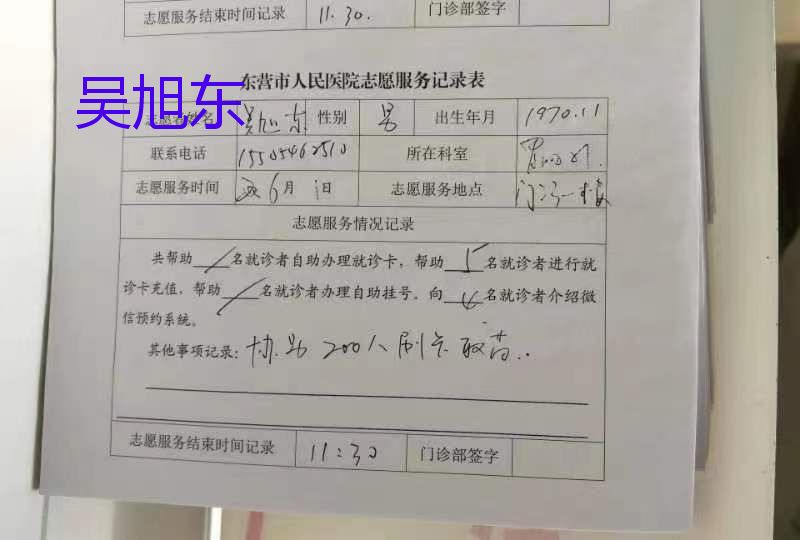 志愿服务结束时间记录 11.30. 门诊部签字
东营市人民医院志愿服务记录表
吴旭东
志愿者姓名 吴旭东 性别 男 出生年月 1970.11
联系电话 15505462510 所在科室
志愿服务时间 6月 日 志愿服务地点 门诊一楼
志愿服务情况记录
共帮助 名就诊者自助办理就诊卡，帮助 5 名就诊者进行就
诊卡充值，帮助 名就诊者办理自助挂号。向 名就诊者介绍微
信预约系统。
其他事项记录：协助 200人刷卡取药..
志愿服务结束时间记录 11:30 门诊部签字